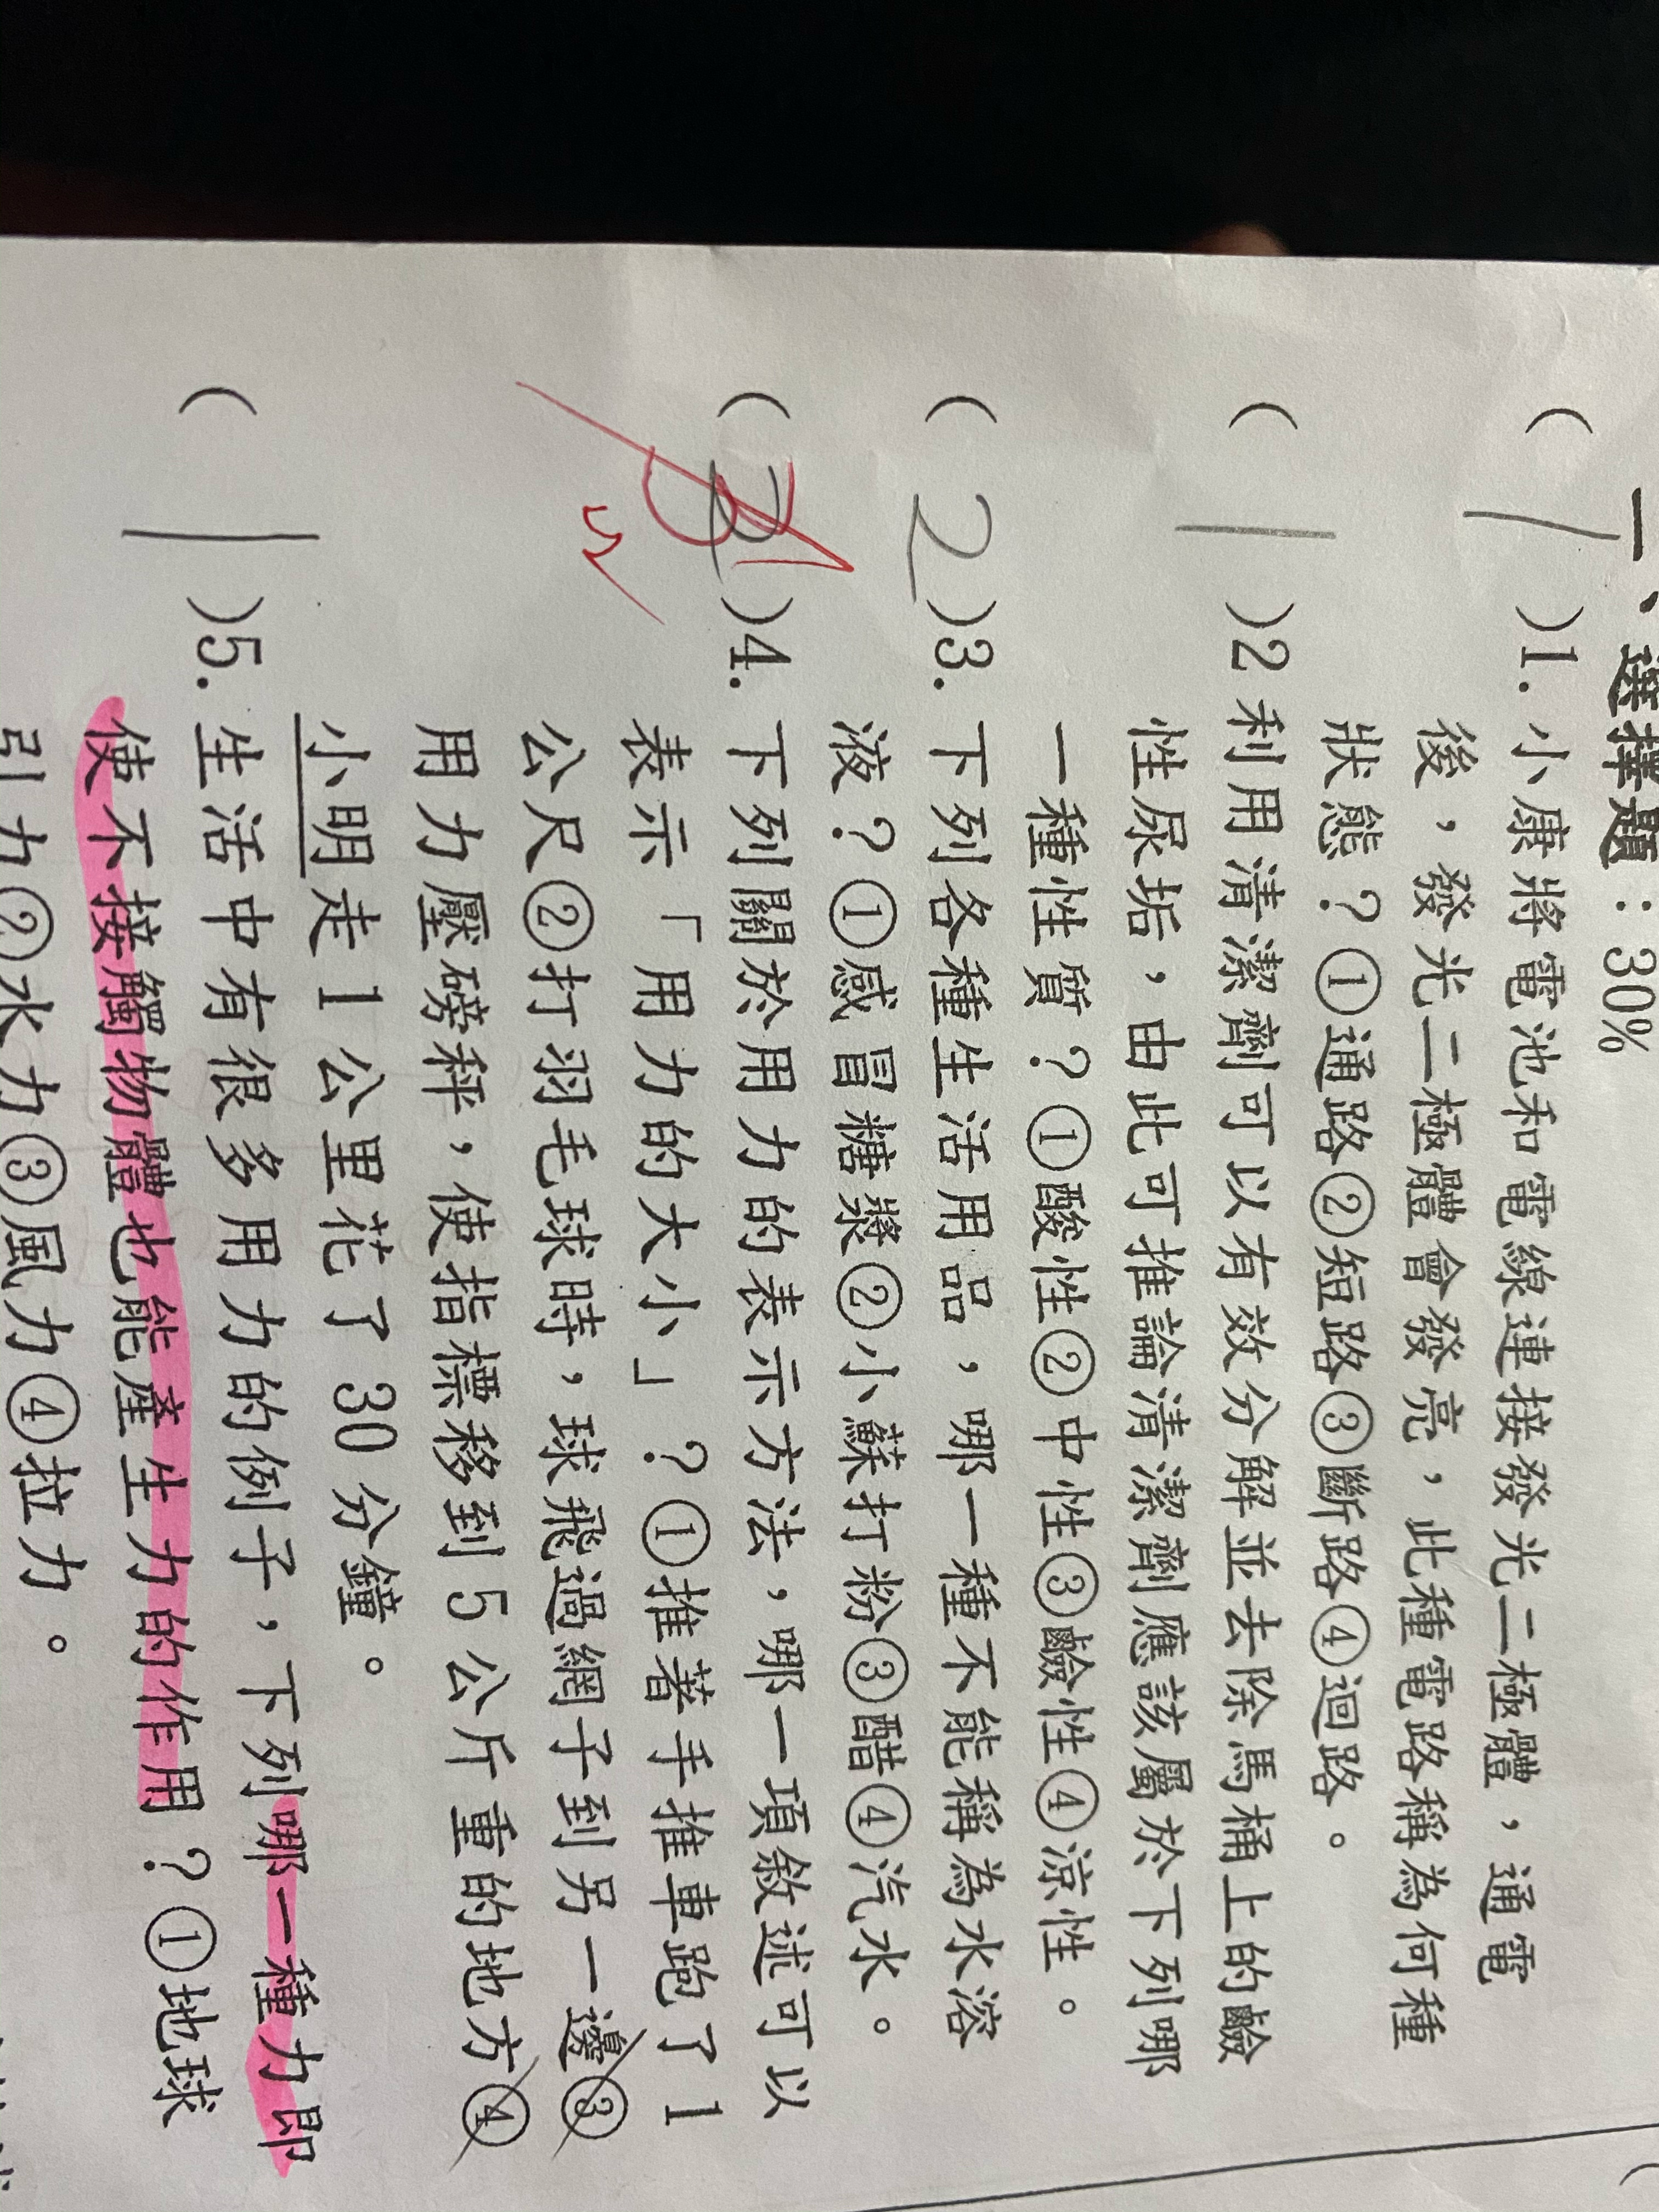 一、選擇題：30%
( 1 )1. 小康將電池和電線連接發光二極體，通電
後，發光二極體會發亮，此種電路稱為何種
狀態？①通路②短路③斷路④迴路。
( 1 )2 利用清潔劑可以有效分解並去除馬桶上的鹼
性尿垢，由此可推論清潔劑應該屬於下列哪
一種性質？①酸性②中性③鹼性④涼性。
( 2 )3. 下列各種生活用品，哪一種不能稱為水溶
液？①感冒糖漿②小蘇打粉③醋④汽水。
( )4. 下列關於用力的表示方法，哪一項敘述可以
表示「用力的大小」？①推著手推車跑了1
公尺②打羽毛球時，球飛過網子到另一邊③
用力壓磅秤，使指標移到5公斤重的地方④
小明走1公里花了30分鐘。
( 1 )5. 生活中有很多用力的例子，下列哪一種力即
使不接觸物體也能產生力的作用？①地球
引力②水力③風力④拉力。